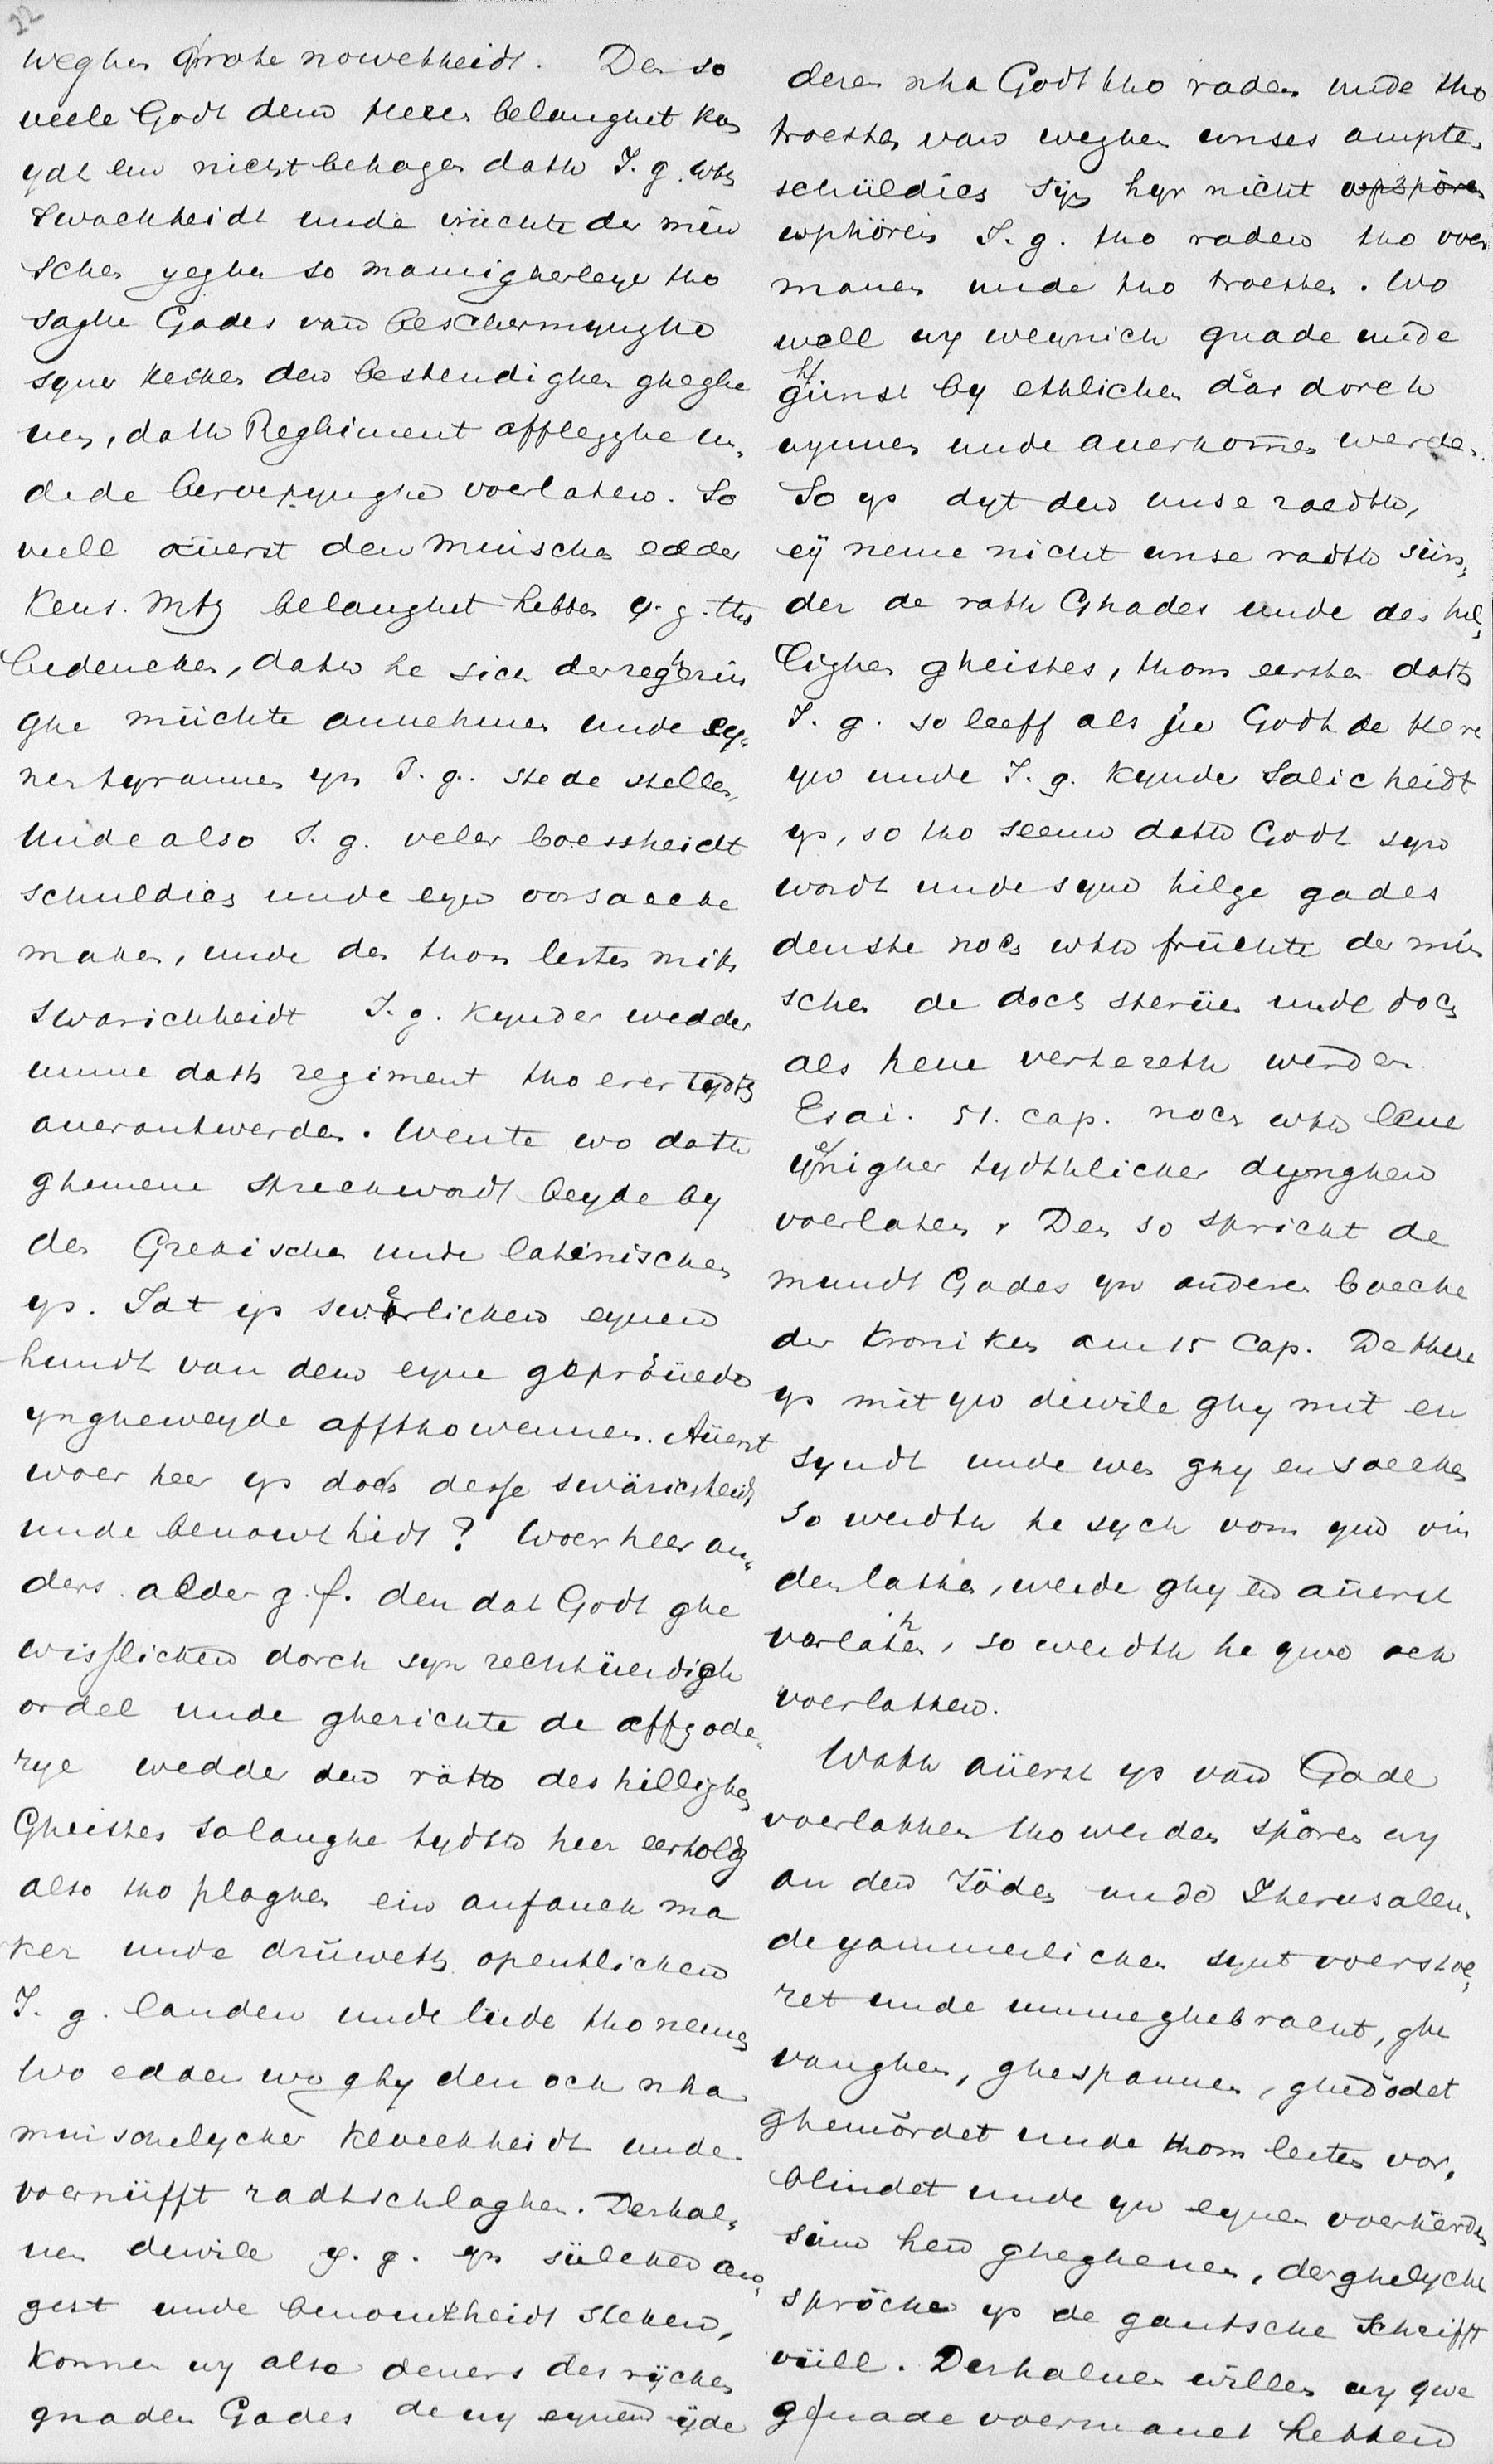 22
weghen grote nowetheidt. Den so
veele Godt den Heren belanghet kan
ydt em nicht behagen dath I. g. uth
swackheidt unde früchte der min
schen yeghen so mannigherleye tho
saghe Gades van beschermynghe
syner kercken den bestendighen gheghe
uen, dath Reghiment afflegghe un„
de de beropynghe voerlaten. So
veell äuerst den minschen edder
Keus. Mtz belanghet hebben y. g. tho
bedencken, dath he sick der regherin
ghe müchte annehmen unde ey„
nen tyrannen yn I. g. stede stellen,
Unde also I. g. veler boessheidt
schuldich unde eyn oorsaecke
maken, unde den thom lesten mith
swarichheidt I. g. kynder wedder
umme dath regiment tho erer tydth
auerantwerden. Wente wo dath
ghemene spreckwordt beyde by
den Grekischen unde latinischen
ys. Idt ys swerlicken eynen
hundt van dem eyne geproüedo
yngheweyde affthowennen. Aüerst
woer heer ys doch desse swäricheidt
unde benowtheidt? Woer heer an„
ders alder g. f. den dat Godt ghe
wisslicken dorch syn rechtüerdigh
ordel unde gherichte de affgode„
rye wedder den räth des hillighen
Gheistes solanghe tydth heer erholdt
also tho plaghen ein anfanck ma
ket unde drüweth opentlicken
I. g. landen unde lüde tho nemen
Wo edder wo ghy den ock nha
minschelycker kloeckheidt unde
voernüfft radtschlaghen. Derhal„
uen dewile y. g. yn sülcken an„
gest unde benowtheidt steken,
konnen wy alse deners des rycken
gnaden Gades de wy eynen yde
deren nha Godt tho raden unde tho
troesten van weghen unses ampte„
schüldich syn hyr nicht upspören
uphören I. g. tho raden tho voer
manen unde tho troesten. Wo
well wy weynich gnade unde
günst by ethlichen där dorch
wynnen unde auerkomen werden.
So ys dyt den unse raedth,
ey neme nicht unse radth sün„
der de rath Ghades unde des hil„
lighen gheistes, thom eersten dath
I. g. so leeff als jw Godt de Here
yw unde I. g. kynder Salicheidt
ys, so tho seenn dath Godt syn
wordt unde syne hilge gades
denste noch uth früchte der min
schen de doch sterüen unde doch
als heue vertereth werden
Esai. 51. cap. noch uth leue
eynigher tydthlicker dynghen
voerlaten. Den so spricht de
mundt Gades yn anderen boecke
der Kroniken am 15 Cap. De Here
ys mit yw dewile ghy mit em
syndt unde wen ghy en soecken
so werdth he sych vom yw vin
den lathen, werde ghy en aüerst
verlathen, so werdth he ywe ock
voerlathen.
Wath aüerst ys van Gade
voerlathen tho werden spören wy
an den Jöden unde Iherusalem
de yammerlicken synt voerstoe„
ret unde ummeghebracht, ghe
vanghen, ghespannen, ghedodet
ghemördet unde thom lesten vor„
blindet unde yn eynen voerkerden
sinn hen gheghenen, derghelyche
spröcke ys de gantsche Schrifft
vüll. Derhaluen willen wy ywe
gnade voermanet hebben